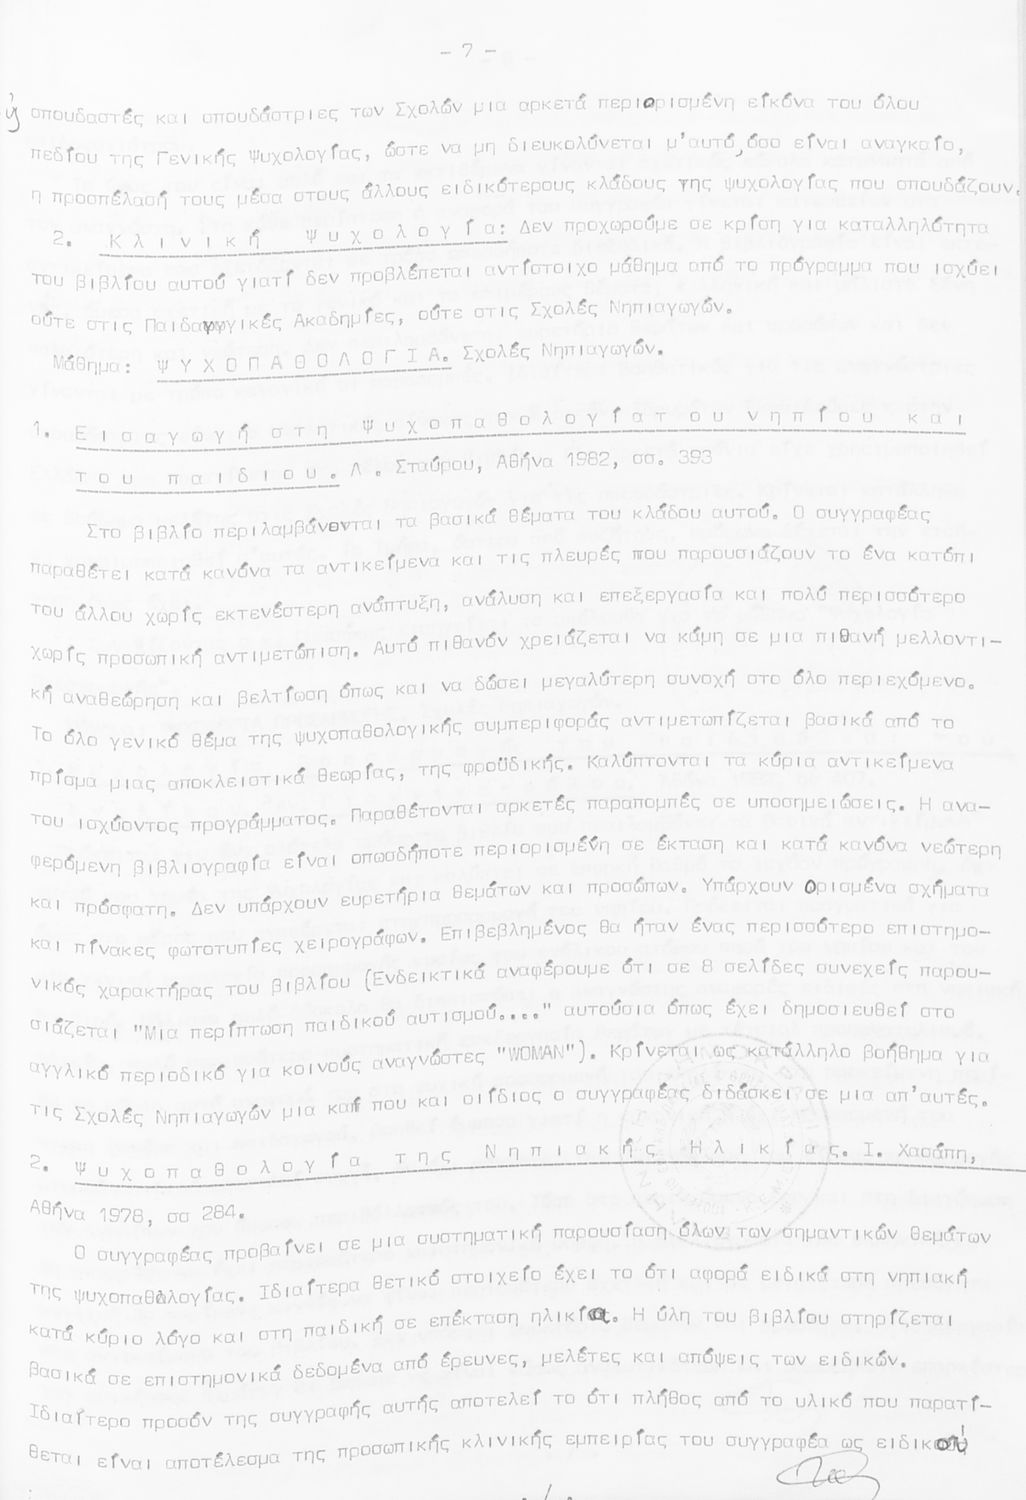 - 7 -
σπουδαστές και σπουδάστριες των Σχολών μια αρκετά περιορισμένη εικόνα του όλου
πεδίου της Γενικής ψυχολογίας, ώστε να μη διευκολύνεται μ'αυτό,όσο είναι αναγκαίο,
η προσπέλασή τους μέσα στους άλλους ειδικότερους κλάδους της ψυχολογίας που σπουδάζουν.
2. Κλινική ψυχολογία: Δεν προχωρούμε σε κρίση για καταλληλότητα
του βιβλίου αυτού γιατί δεν προβλέπεται αντίστοιχο μάθημα από το πρόγραμμα που ισχύει
ούτε στις Παιδαγωγικές Ακαδημίες, ούτε στις Σχολές Νηπιαγωγών.
Μάθημα: ΨΥΧΟΠΑΘΟΛΟΓΙΑ. Σχολές Νηπιαγωγών.
1. Εισαγωγή στη ψυχοπαθολογία του νηπίου και
του παιδιου. Λ. Σταύρου, Αθήνα 1982, σσ. 393
Στο βιβλίο περιλαμβάνονται τα βασικά θέματα του κλάδου αυτού. Ο συγγραφέας
παραθέτει κατά κανόνα τα αντικείμενα και τις πλευρές που παρουσιάζουν το ένα κατόπι
του άλλου χωρίς εκτενέστερη ανάπτυξη, ανάλυση και επεξεργασία και πολύ περισσότερο
χωρίς προσωπική αντιμετώπιση. Αυτό πιθανόν χρειάζεται να κάμη σε μια πιθανή μελλοντι-
κή αναθεώρηση και βελτίωση όπως και να δώσει μεγαλύτερη συνοχή στο όλο περιεχόμενο.
Το όλο γενικό θέμα της ψυχοπαθολογικής συμπεριφοράς αντιμετωπίζεται βασικά από το
πρίσμα μιας αποκλειστικά θεωρίας, της φροϋδικής. Καλύπτονται τα κύρια αντικείμενα
του ισχύοντος προγράμματος. Παραθέτονται αρκετές παραπομπές σε υποσημειώσεις. Η ανα-
φερόμενη βιβλιογραφία είναι οπωσδήποτε περιορισμένη σε έκταση και κατά κανόνα νεώτερη
και πρόσφατη. Δεν υπάρχουν ευρετήρια θεμάτων και προσώπων. Υπάρχουν ορισμένα σχήματα
και πίνακες φωτοτυπίες χειρογράφων. Επιβεβλημένος θα ήταν ένας περισσότερο επιστημο-
νικός χαρακτήρας του βιβλίου (Ενδεικτικά αναφέρουμε ότι σε 8 σελίδες συνεχείς παρου-
σιάζεται "Μια περίπτωση παιδικού αυτισμού...." αυτούσια όπως έχει δημοσιευθεί στο
αγγλικό περιοδικό για κοινούς αναγνώστες "WOMAN"). Κρίνεται ως κατάλληλο βοήθημα για
τις Σχολές Νηπιαγωγών μια και που και οίδιος ο συγγραφέας διδάσκει σε μια απ'αυτές.
2. Ψυχοπαθολογία της Νηπιακής Ηλικίας. Ι. Χασάπη,
Αθήνα 1978, σσ 284.
Ο συγγραφέας προβαίνει σε μια συστηματική παρουσίαση όλων των σημαντικών θεμάτων
της ψυχοπαθολογίας. Ιδιαίτερα θετικό στοιχείο έχει το ότι αφορά ειδικά στη νηπιακή
κατά κύριο λόγο και στη παιδική σε επέκταση ηλικία. Η ύλη του βιβλίου στηρίζεται
βασικά σε επιστημονικά δεδομένα από έρευνες, μελέτες και απόψεις των ειδικών.
Ιδιαίτερο προσόν της συγγραφής αυτής αποτελεί το ότι πλήθος από το υλικό που παρατί-
θεται είναι αποτέλεσμα της προσωπικής κλινικής εμπειρίας του συγγραφέα ως ειδικού
./.